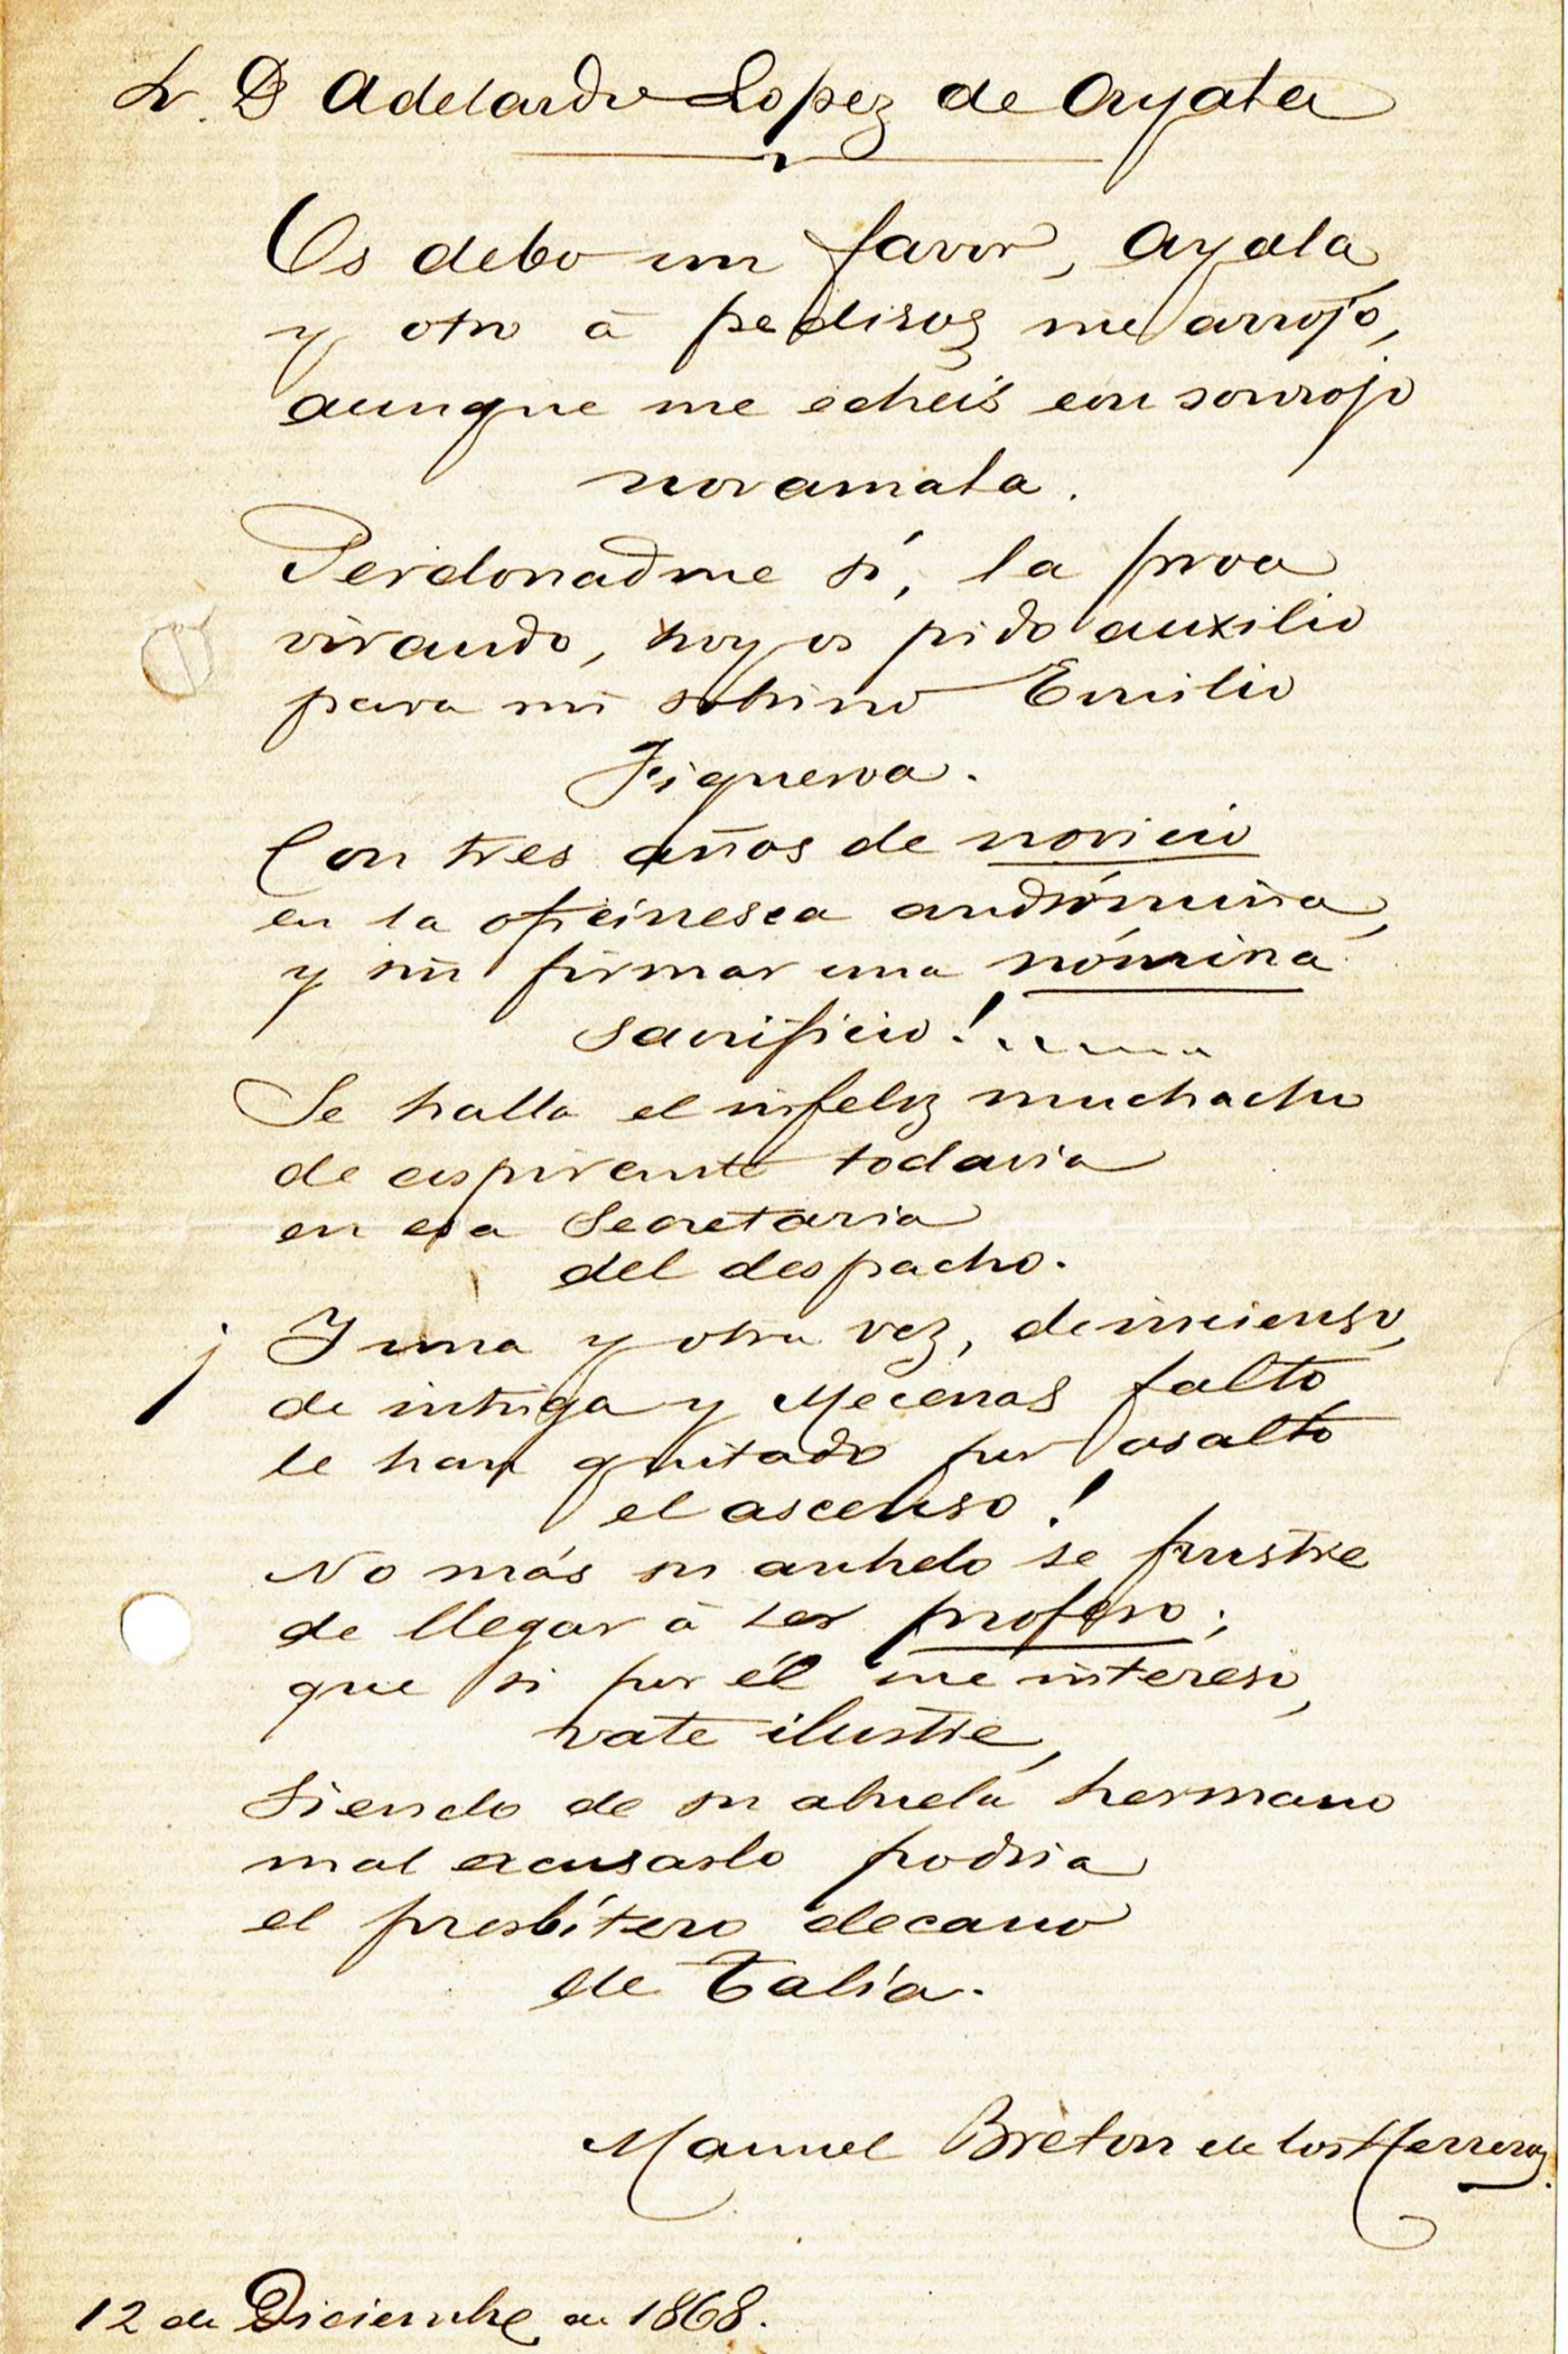 Sr. D Adelardo Lopez de Ayala
Os debo un favor, Ayala,
y otro á pediros me arrojo,
aunque me echeis con sonrojo
noramala.
Perdonadme si, la proa
virando, hoy os pido auxilio
para mi sobrino Emilio
Figueroa.
Con tres años de novicio
en la oficinesca andrómina,
y sin firmar una nómina
sacrificio!......
Se halla el infeliz muchacho
de aspirante todavia
en esa Secretaria
del despacho.
¡Y una y otra vez, de incienso,
de intriga y Mecenas falto,
le han quitado por asalto
el ascenso!
No más su anhelo se frustre
de llegar á ser profeso;
que si por él me intereso,
vate ilustre,
Siendo de su abuela hermano
mal excusarlo podria
el presbítero decano
de Talía.
Manuel Breton de los Herreros.
12 de Diciembre de 1868.